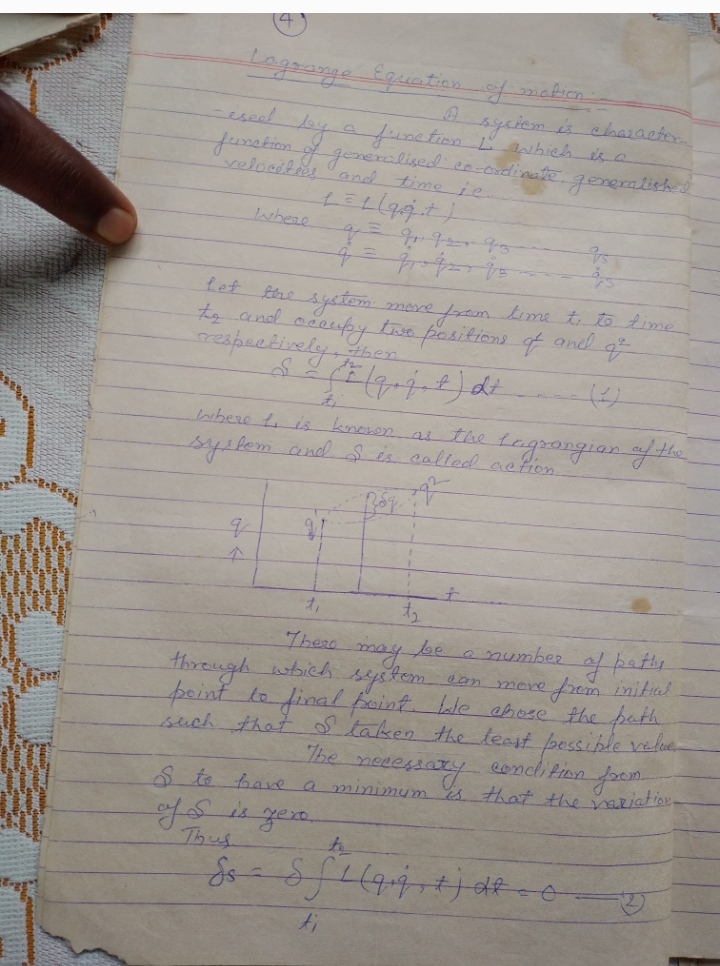 4
Lagrange Equation of motion:-
A system is character-
-esed by a function L which is a
function of generalised co-ordinate generalished
velocities and time i.e.
L = L(q, q̇, t)
Where q = q₁, q₂, q₃ ------ qₛ
q̇ = q̇₁, q̇₂, q̇₃ ------ q̇ₛ
Let the system move from time t₁ to time
t₂ and occupy two positions q¹ and q²
respectively, then
S = ∫ₜ₁ᵗ² L (q, q̇, t) dt ----- (1)
where L is known as the Lagrangian of the
system and S is called action
q² δq
q
↑
q¹
t₁ t₂ t
There may be a number of paths
through which system can move from initial
point to final point. We chose the path
such that S taken the least possible value
The necessary condition from
S to have a minimum is that the variation
of S is zero
Thus
δs = δ ∫ₜ₁ᵗ² L(q, q̇, t) dt = 0 — (2)